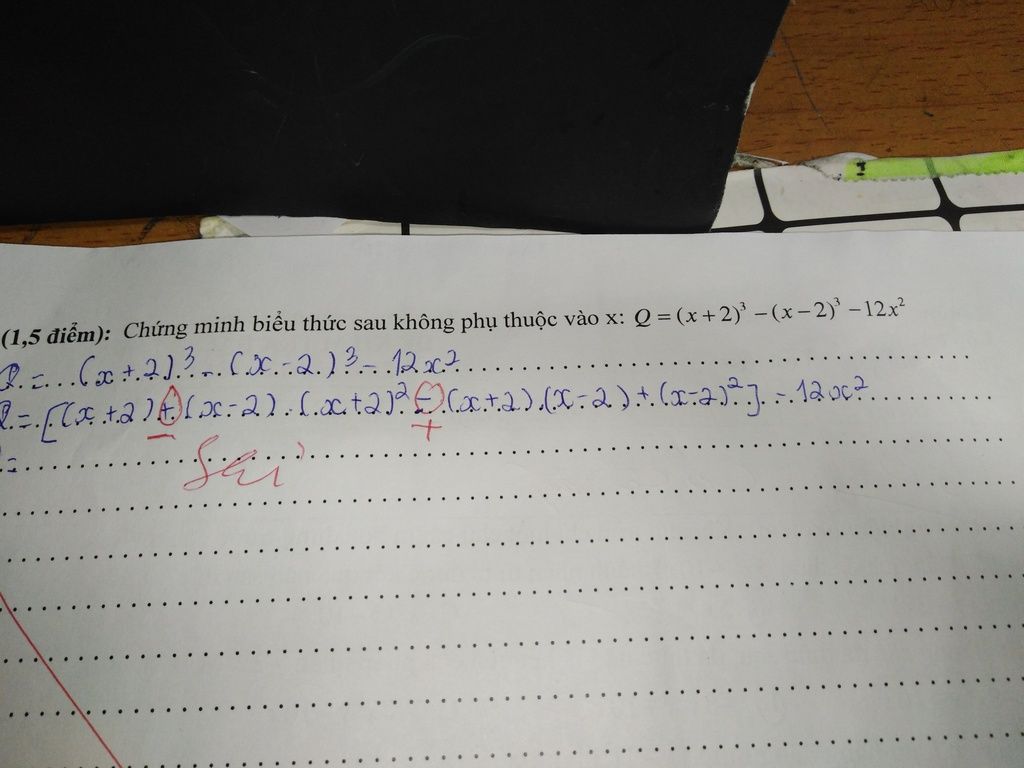 (1,5 điểm): Chứng minh biểu thức sau không phụ thuộc vào x: Q = (x + 2)³ − (x − 2)³ − 12x²
Q = (x + 2)³ - (x - 2)³ - 12x²
Q = [(x + 2) + (x - 2) . (x + 2)² - (x + 2).(x - 2) + (x - 2)²] - 12x²
− +
=
Sai